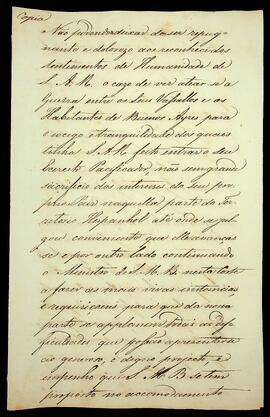 Copia
Não podendo deixar de ser repug-
nante e doloroso aos reconhecidos
sentimentos de Humanidade de
S. A. R. o cazo de ver atear se a
Guerra entre os Seus Vaßallos e os
Habitantes de Buenos Ayres para
o socego e tranquilidade dos quaes
tinha S. A. R. feito entrar o seu
Exercito Pacificador, não sem grande
sacrificio dos interesses do seu pro-
prio Paiz naquella parte do Ter-
ritorio Hespanhol até onde se jul-
gou conveniente que
se e por outro lado continuando
o Ministro de S. M. B. nesta Corte
a fazer as mais vivas instancias
e requisiçoens para que da nossa
parte se applanem as dif-
ficuldades que poßão apresentar se
ao generoso, e digno projecto, e
empenho que S. M. B. se tem
proposto no accomodamento